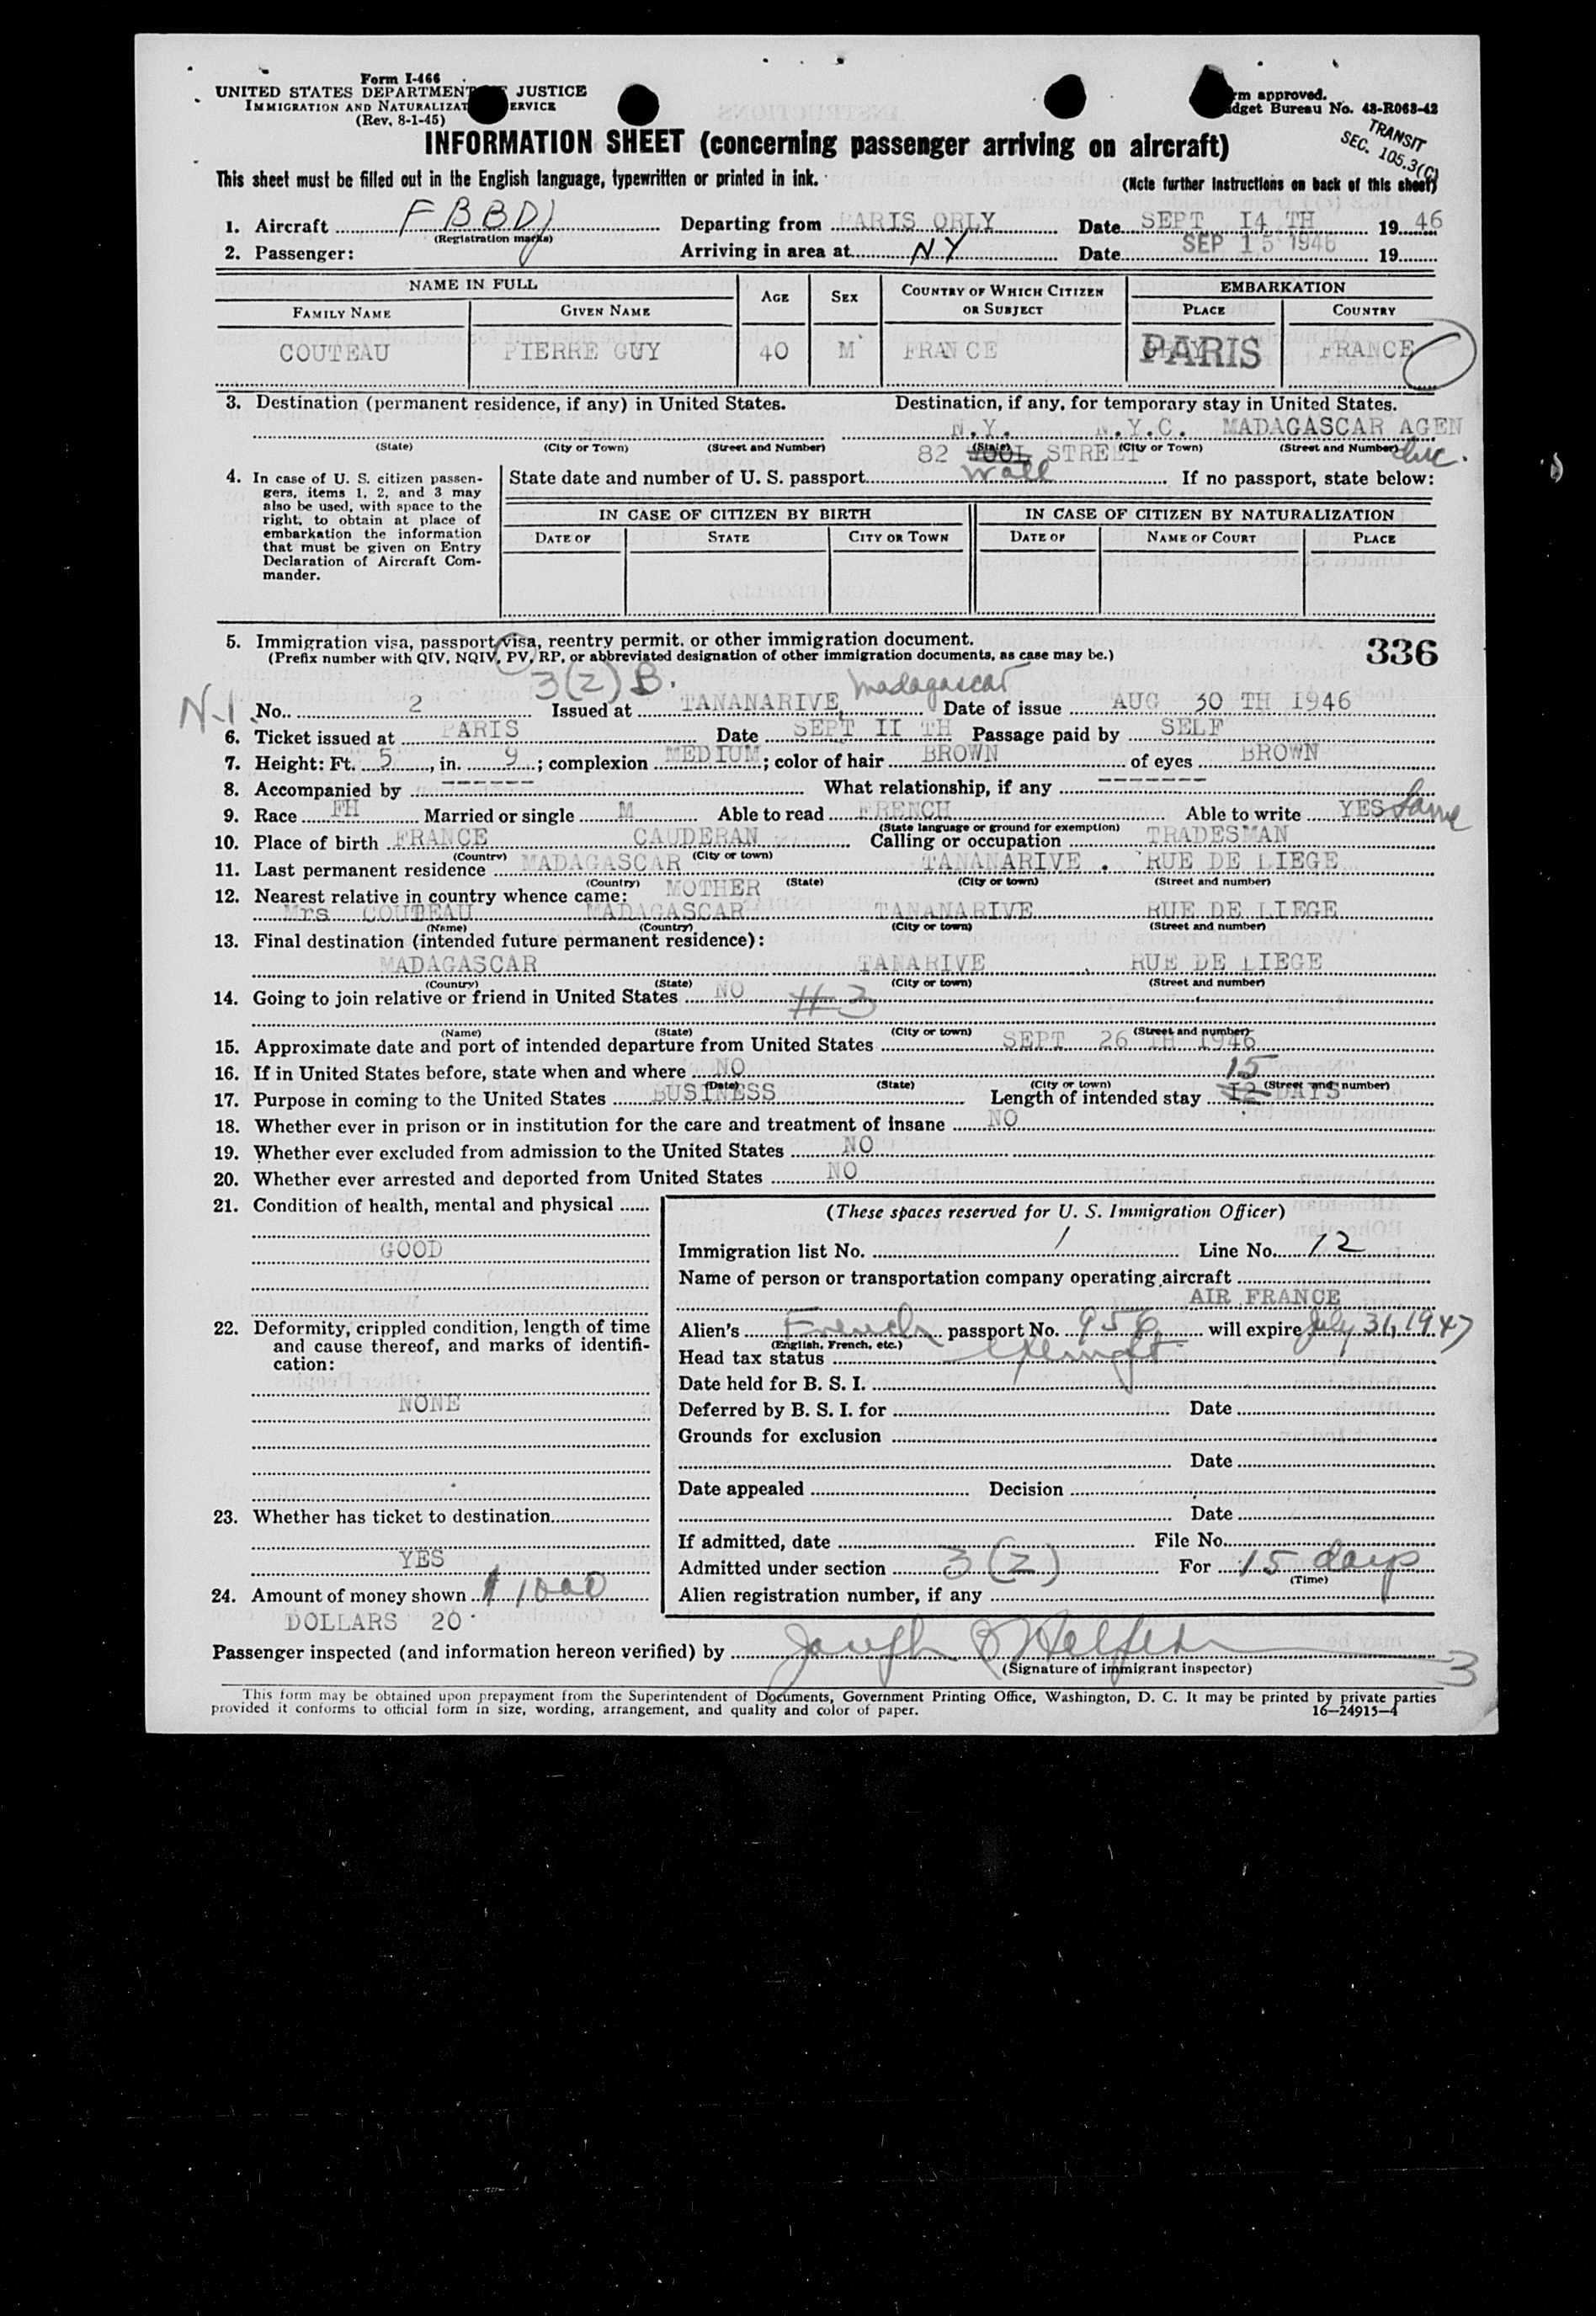 Form I-466
UNITED STATES DEPARTMENT JUSTICE
IMMIGRATION AND NATURALIZAT ERVICE
(Rev. 8-1-45)
rm approved.
dget Bureau No. 43-R063-42
TRANSIT
SEC. 105.3(C)
INFORMATION SHEET (concerning passenger arriving on aircraft)
This sheet must be filled out in the English language, typewritten or printed in ink.
(Note further instructions on back of this sheet)
1. Aircraft F B B D J Departing from PARIS ORLY Date SEPT I4 TH 19 46
(Registration marks)
2. Passenger: Arriving in area at NY Date SEP 15 1946 19
NAME IN FULL AGE SEX COUNTRY OF WHICH CITIZEN OR SUBJECT EMBARKATION
FAMILY NAME GIVEN NAME PLACE COUNTRY
COUTEAU PIERRE GUY 40 M FRANCE PARIS FRANCE
3. Destination (permanent residence, if any) in United States. Destination, if any, for temporary stay in United States.
N.Y. N.Y.C. MADAGASCAR AGEN
(State) (City or Town) (Street and Number) (State) (City or Town) (Street and Number) Inc.
82 STREET
Wall
4. In case of U. S. citizen passengers, items 1, 2, and 3 may also be used, with space to the right, to obtain at place of embarkation the information that must be given on Entry Declaration of Aircraft Commander.
State date and number of U. S. passport If no passport, state below:
IN CASE OF CITIZEN BY BIRTH IN CASE OF CITIZEN BY NATURALIZATION
DATE OF STATE CITY OR TOWN DATE OF NAME OF COURT PLACE
5. Immigration visa, passport visa, reentry permit, or other immigration document.
336
(Prefix number with QIV, NQIV, PV, RP, or abbreviated designation of other immigration documents, as case may be.)
3(2) B. Madagascar
N-1 No. 2 Issued at TANANARIVE, Date of issue AUG 30 TH 1946
6. Ticket issued at PARIS Date SEPT II TH Passage paid by SELF
7. Height: Ft. 5, in. 9; complexion MEDIUM; color of hair BROWN of eyes BROWN
8. Accompanied by ------- What relationship, if any --------
9. Race FH Married or single M Able to read FRENCH Able to write YES Same
(State language or ground for exemption)
10. Place of birth FRANCE CAUDERAN Calling or occupation TRADESMAN
(Country) (City or town)
11. Last permanent residence MADAGASCAR TANANARIVE . RUE DE LIEGE
(Country) (State) (City or town) (Street and number)
12. Nearest relative in country whence came: MOTHER
Mrs COUTEAU MADAGASCAR TANANARIVE RUE DE LIEGE
(Name) (Country) (City or town) (Street and number)
13. Final destination (intended future permanent residence):
MADAGASCAR TANARIVE RUE DE LIEGE
(Country) (State) (City or town) (Street and number)
14. Going to join relative or friend in United States NO #3
(Name) (State) (City or town) (Street and number)
15. Approximate date and port of intended departure from United States SEPT 26 TH 1946
16. If in United States before, state when and where NO
(Date) (State) (City or town) (Street and number)
15
17. Purpose in coming to the United States BUSINESS Length of intended stay I2 DAYS
18. Whether ever in prison or in institution for the care and treatment of insane NO
19. Whether ever excluded from admission to the United States NO
20. Whether ever arrested and deported from United States NO
21. Condition of health, mental and physical
GOOD
22. Deformity, crippled condition, length of time and cause thereof, and marks of identification:
NONE
23. Whether has ticket to destination
YES
24. Amount of money shown $1000
DOLLARS 20
(These spaces reserved for U. S. Immigration Officer)
Immigration list No. 1 Line No. 12
Name of person or transportation company operating aircraft
AIR FRANCE
Alien's French passport No. 956 will expire July 31, 1947
(English, French, etc.)
Head tax status exempt
Date held for B. S. I.
Deferred by B. S. I. for Date
Grounds for exclusion
Date
Date appealed Decision
Date
If admitted, date File No.
Admitted under section 3(2) For 15 days
(Time)
Alien registration number, if any
Passenger inspected (and information hereon verified) by Joseph
(Signature of immigrant inspector)
3
This form may be obtained upon prepayment from the Superintendent of Documents, Government Printing Office, Washington, D. C. It may be printed by private parties
provided it conforms to official form in size, wording, arrangement, and quality and color of paper. 16—24915-4